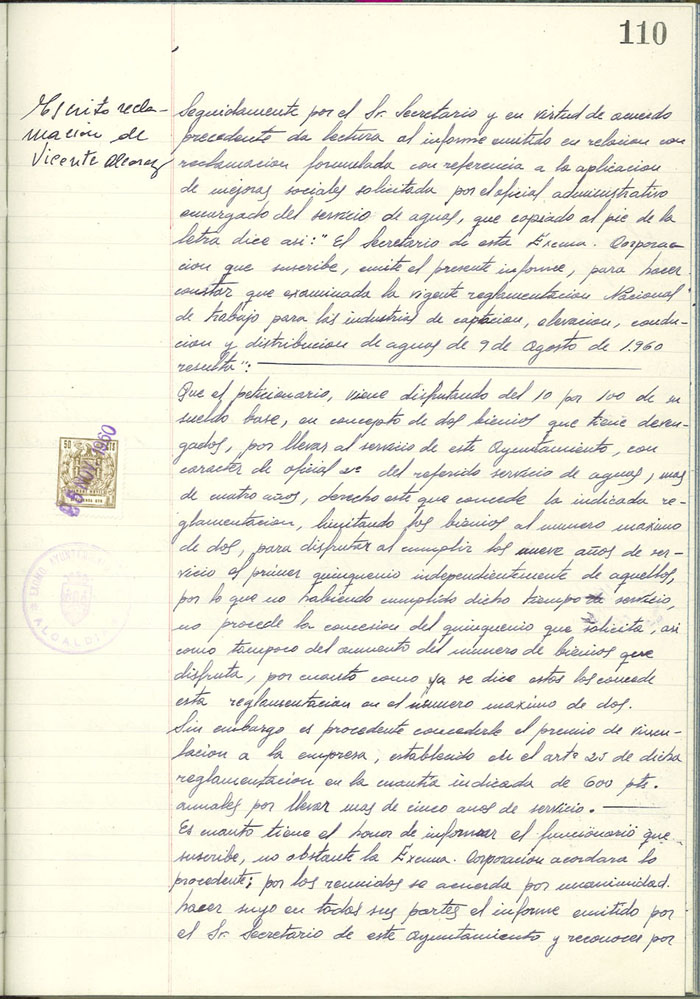 110
Escrito recla-
macion de
Vicente Alcaraz
Seguidamente por el Sr. Secretario y en virtud de acuerdo
precedente da lectura al informe emitido en relacion con
reclamacion formulada con referencia a la aplicacion
de mejoras sociales solicitada por el oficial administrativo
encargado del servicio de aguas, que copiado al pie de la
letra dice asi: "El Secretario de esta Excma. Corpora-
cion que suscribe, emite el presente informe, para hacer
constar que examinada la vigente reglamentacion Nacional
de trabajo para las industrias de captacion, elevacion, conduc-
cion y distribucion de aguas de 9 de Agosto de 1.960
resulta":
Que el peticionario, viene disfrutando del 10 por 100 de su
sueldo base, en concepto de dos bienios que tiene deven-
gados, por llevar al servicio de este Ayuntamiento, con
caracter de oficial del referido servicio de aguas, mas
de cuatro años, derecho este que concede la indicada re-
glamentacion, limitando los bienios al numero maximo
de dos, para disfrutar al cumplir los nueve años de ser-
vicio el primer quinquenio independientemente de aquellos,
por lo que no habiendo cumplido dicho tiempo de servicio,
no procede la concesion del quinquenio que solicita, asi
como tampoco del aumento del numero de bienios que
disfruta, por cuanto como ya se dice estos los concede
esta reglamentacion en el numero maximo de dos.
Sin embargo es procedente concederle el premio de vincu-
lacion a la empresa, establecido en el artº 25 de dicha
reglamentacion en la cuantia indicada de 600 pts.
anuales por llevar mas de cinco anos de servicio.
Es cuanto tiene el honor de informar el funcionario que
suscribe, no obstante la Excma. Corporacion acordara lo
procedente; por los reunidos se acuerda por unanimidad
hacer suyo en todas sus partes el informe emitido por
el Sr. Secretario de este Ayuntamiento y reconocer por
50 CTS
5 NOV 1960
ALCALDIA